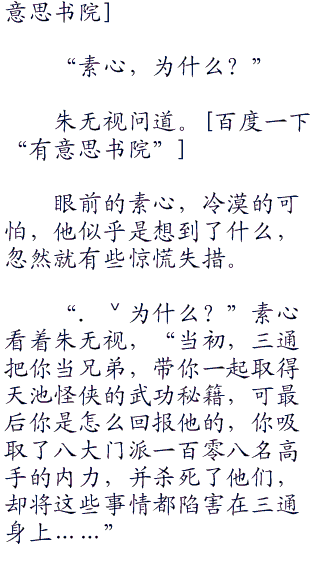 意思书院]
“素心，为什么？”
朱无视问道。[百度一下
“有意思书院”]
眼前的素心，冷漠的可
怕，他似乎是想到了什么，
忽然就有些惊慌失措。
“．ˇ为什么？”素心
看着朱无视，“当初，三通
把你当兄弟，带你一起取得
天池怪侠的武功秘籍，可最
后你是怎么回报他的，你吸
取了八大门派一百零八名高
手的内力，并杀死了他们，
却将这些事情都陷害在三通
身上……”